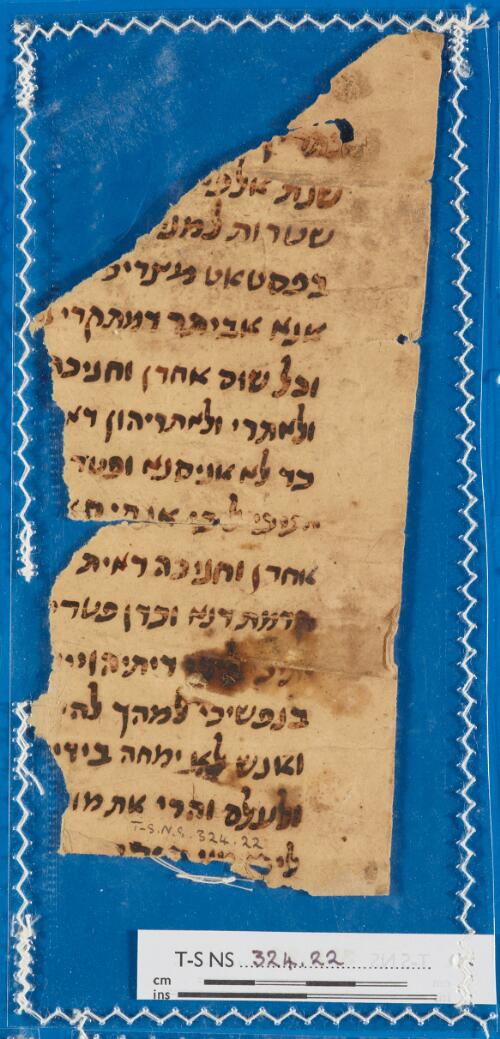 שנת אלפ
שטרות למני
בפסטאט מצרים
אנא אביתר דמתקרי
וכל שום אחרן וחניכה
ולאתרי ולאתריהון דא
כד לא אניסנא ופטר
תיכי ליכי אנתי
אחרן וחניכה דאית
קדמת דנא וכדן פטרי
דיתיהוייי
בנפשיכי למהך להי
ואנש לא ימחה בידי
ולעלם והרי את מו
T-S.N.S. 324.22
T-S NS 324.22
cm
ins